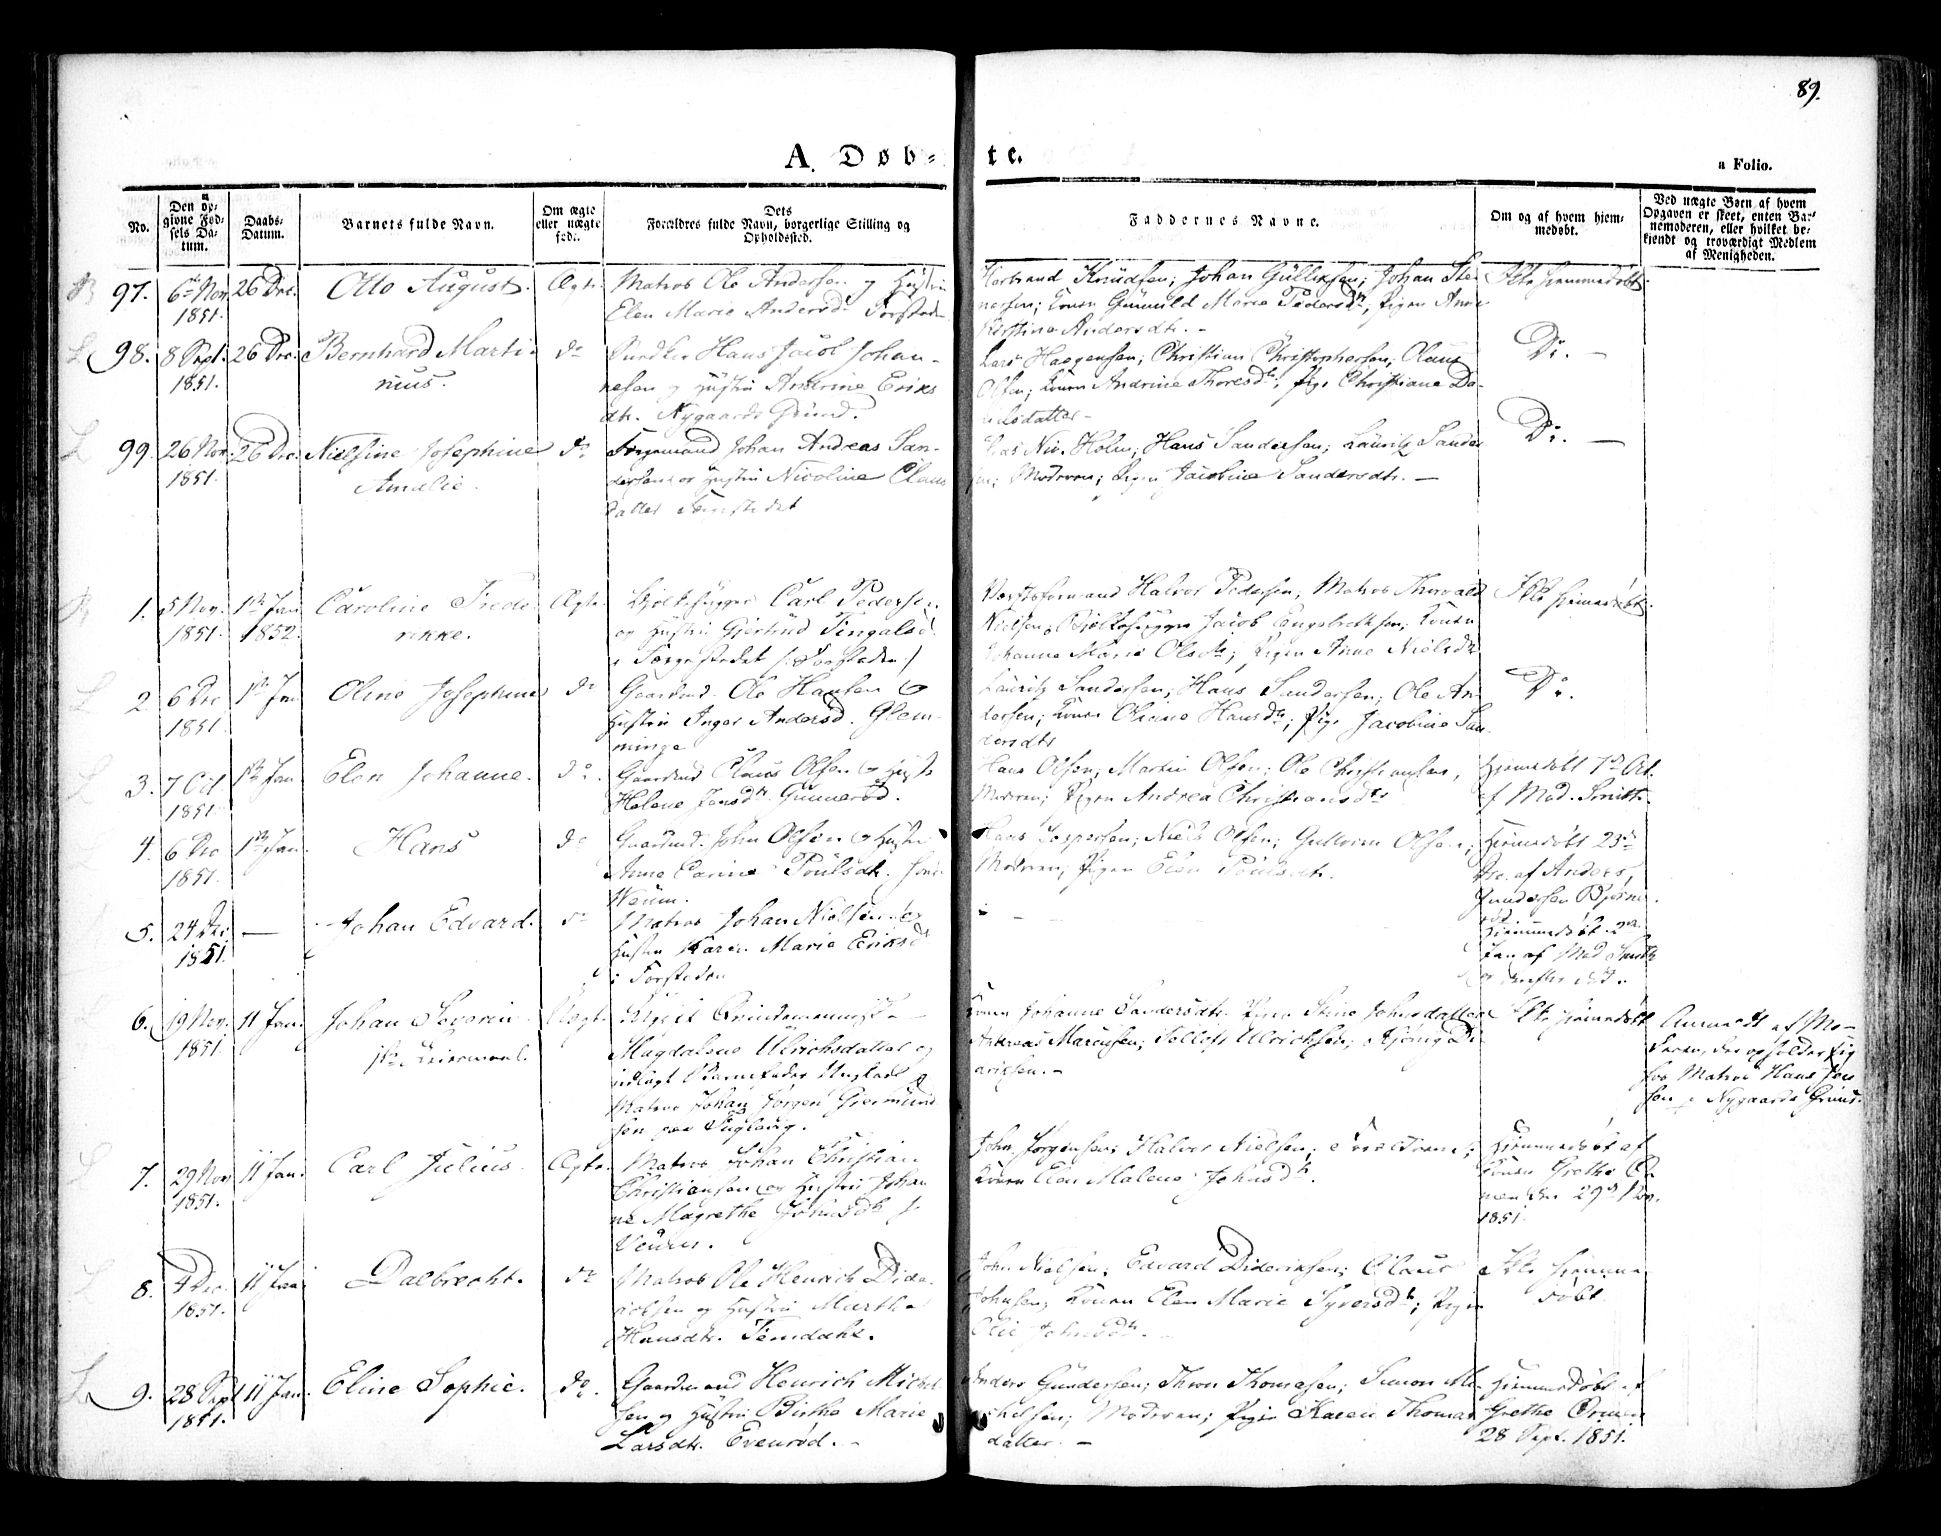 89.
A. Døb-
te.
a Folio.
No.
Den op-
givne Fød-
sels Da-
tum.
Daabs-
Datum.
Barnets fulde Navn.
Om ægte
eller uægte
født.
Dets
Forældres fulde Navn, borgerlige Stilling og
Opholdssted.
Faddernes Navne.
Om og af hvem hjem-
medøbt.
Ved uægte Børn af hvem
Opgaven er skeet, enten Bar-
nemoderen, eller hvilket be-
kjendt og troværdigt Medlem
af Menigheden.
97. 6te Nov 1851. 26 Dec. Otto August. Ægte
Matros Ole Andersen og Hustru
Elen Marie Andersd. Forstaden
Knudsen; Johan Gulliksen; Johan Ste-
nersen; Konen Gunnild Marie Pedersdt, Pigen Anne
Kirstine Andersdtr. -
Ikke hjemmedøbt.
98. 8 Sept. 1851. 26 Dec. Bernhard Marti-
nius. do
Hans Jacob Johan-
nesen og Hustru Andrine Eriks
dtr. Nygaards Grund.
Lars Haagensen; Christian Christophersen; Claus
Olsen; Konen Andrine Thoresdt; Pige Christiane Da-
nielsdatter -
Do. -
99. 26 Nov. 1851. 26 Dec. Nielsine Josephine
Amalie. do
Johan Andreas San-
dersen og Hustru Nicoline Claus
datter
Nic. Holm; Hans Sandersen; Lauritz Sander
sen; Moderen; Pigen Jacobine Sandersdtr. -
Do. -
1. 5 Nov. 1851. 1ste Jan 1852. Caroline Frede-
rikke. Ægte
Carl Pedersen
og Hustru Gjertrud Tingalsd.
(: Forstaden :)
Halvor Pedersen; Matros Thorvald
Nielsen; Jacob Engebrethsen; Konen
Johanne Marie Olsdtr; Pigen Anne Nielsdtr
Ikke hjemmedøbt.
2 6 Dec 1851. 1ste Jan Oline Josephine do
Gaardmd. Ole Hansen og
Hustru Inger Andersd. Glem-
minge
Lauritz Sandersen; Hans Sandersen; Ole An-
dersen; Konen Hansdt; Pige Jacobine San-
dersdtr
Do.
3. 7 Oct 1851. 1ste Jan Elen Johanne. do.
Gaardmd Claus Olsen og Hustr
Helene Jensdt. Gunnerød.
Hans Olsen; Martin Olsen; Ole Christiansen,
Moderen; Pigen Andrea Christiansdtr
Hjemedøbt 7de Oct.
af Mad. Smith.
4. 6 Dec 1851. 1ste Jan. Hans do
Gaardmd. John Olsen og Hustr
Anne Carine Poulsdt.
Veum.
Hans Jespersen; Niels Olsen; Olsen;
Moderen; Pigen Elen Poulsdtr.
Hjemedøbt 23de
Dec. af Anders
Gundersen Bjørne-
rød
5. 24 Dec 1851. - Johan Edvard. do
Matros Johan Nielsen og
Hustru Karen Marie Eriksdt
i Forstaden
Hjemmedøbt 2den
Jan af Mad Smith
og derefter død.
6. 19 Nov. 1851. 11 Jan. Johan Severin
Leiermaal. Uægte
Magdalene Ulrichsdatter og
udlagt Barnefader Ungkarl
Matros Johan Jørgen Giermund
sen paa Fuglevig.
Konen Johanne Sandersdtr. Pigen Stine Johnsdatter
Andreas Marcusen; Tollof Ulrichsen;
Ikke hjemedøbt
Anmeldt af Mo-
deren, der opholder sig
hos Matros Hans Jen
sen p Nygaards Grund.
7. 29 Nov 1851. 11 Jan. Carl Julius. Ægte.
Matros Johan Christian
Christiansen og Hustru Johan
ne Magrethe Johnsdt
Veum.
John Jørgensen; Halvor Nielsen;
Konen Elen Malene Johnsdt.
Hjemmedøbt af
Konen Grethe Or
men den 29de Nov.
1851.
8. 4 Dec. 1851. 11 Jan Dalbrecht. do
Matros Ole Henrich Dide-
riksen og Hustru Marthe
Hansdtr.
John Nielsen; Edvard Dideriksen; Claus
Johnsen; Konen Elen Marie Syversdt; Pigen
Olie Johnsdt.
Ikke hjemme
døbt
9. 28 Sept 1851. 11 Jan. Eline Sophie. do.
Gaardmand Henrich Michel
sen og Hustru Birthe Marie
Larsdtr. Evenrød. -
Anders Gundersen; Thron Thomasen; Simon Mi-
chelsen; Moderen; Pigen Karen Thomas
datter. -
Hjemmedøbt af
Grethe Ormen
28 Sept. 1851.